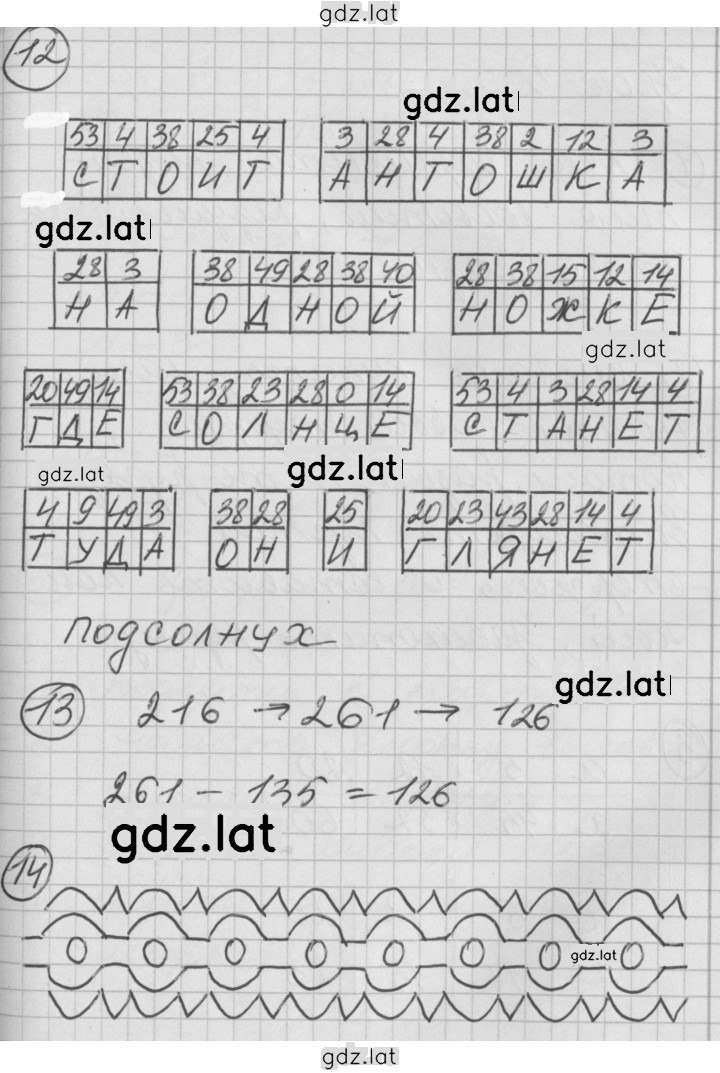 gdz.lat
12
gdz.lat
53 4 38 25 4 3 28 4 38 2 12 3
С Т О И Т А Н Т О Ш К А
gdz.lat
28 3 38 49 28 38 40 28 38 15 12 14
Н А О Д Н О Й Н О Ж К Е
gdz.lat
20 49 14 53 38 23 28 0 14 53 4 3 28 14 4
Г Д Е С О Л Н Ц Е С Т А Н Е Т
gdz.lat gdz.lat
4 9 49 3 38 28 25 20 23 43 28 14 4
Т У Д А О Н И Г Л Я Н Е Т
подсолнух
gdz.lat
13 216 → 261 → 126
261 - 135 = 126
gdz.lat
14
gdz.lat
gdz.lat